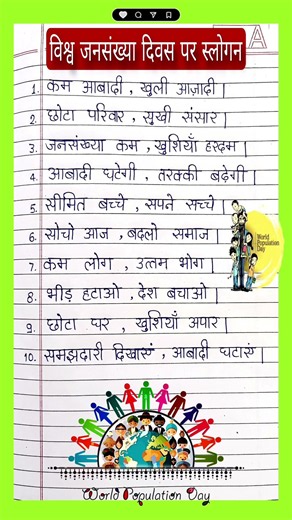 A
विश्व जनसंख्या दिवस पर स्लोगन
1. कम आबादी , खुली आज़ादी |
2. छोटा परिवार , सुखी संसार |
3. जनसंख्या कम , खुशियाँ हरदम |
4. आबादी घटेगी , तरक्की बढ़ेगी |
5. सीमित बच्चे , सपने सच्चे |
6. सोचो आज , बदलो समाज |
7. कम लोग , उत्तम भोग |
8. भीड़ हटाओ , देश बचाओ |
9. छोटा घर , खुशियाँ अपार |
10. समझदारी दिखाएं , आबादी घटाएं |
World
Population
Day
World Population Day